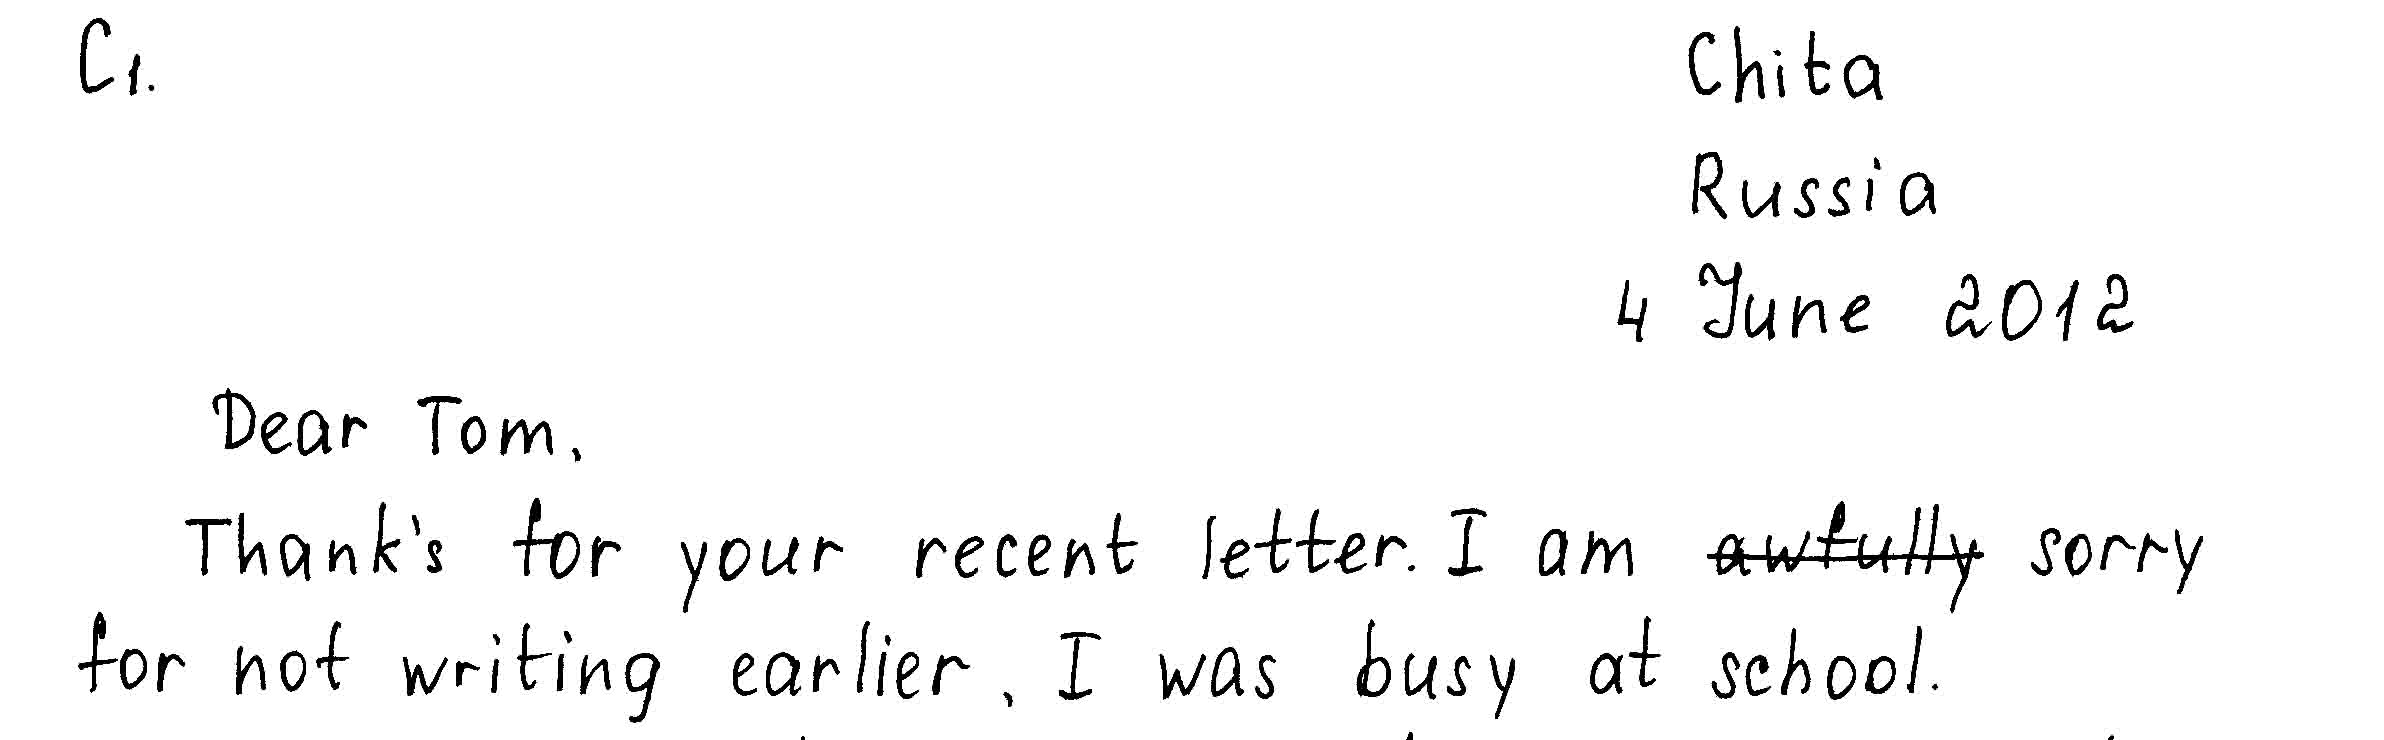 C1.
Chita
Russia
4 June 2012
Dear Tom,
Thank's for your recent letter. I am awfully sorry
for not writing earlier, I was busy at school.